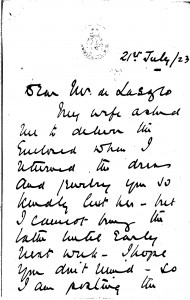 21st July/23
Dear Mr de Laszlo
My wife asked
me to deliver the
Enclosed when I
returned the dress
And jewelry you so
kindly lent her – but
I cannot bring the
latter until Early
next week – I hope
you don't mind – so
I am posting the